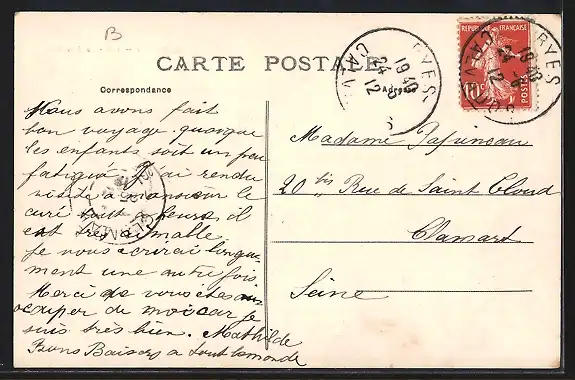 B
CARTE POSTALE
Correspondance
Adresse
Nous avons fait
bon voyage quoique
les enfants soit un peu
fatigué J'ai rendu
visite a monsieur le
curé tout heure il
est très aimable
je vous écrirai longue
ment une autre fois
Merci de vous êtes
occuper de moi car je
suis très bien. Mathilde
Bons Baisers a tout le monde
Madame
20 bis Rue de Saint Cloud
Clamart
Seine
RYES
CALV
24
12
REPUBLIQUE FRANÇAISE
10c
POSTES
RYES
CALV